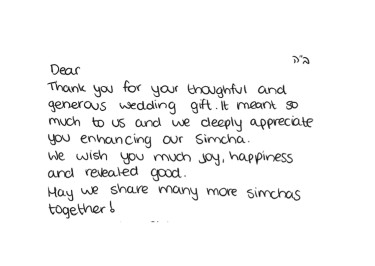 ב"ה
Dear
Thank you for your thoughtful and
generous wedding gift. It meant so
much to us and we deeply appreciate
you enhancing our Simcha.
We wish you much joy, happiness
and revealed good.
May we share many more simchas
together!